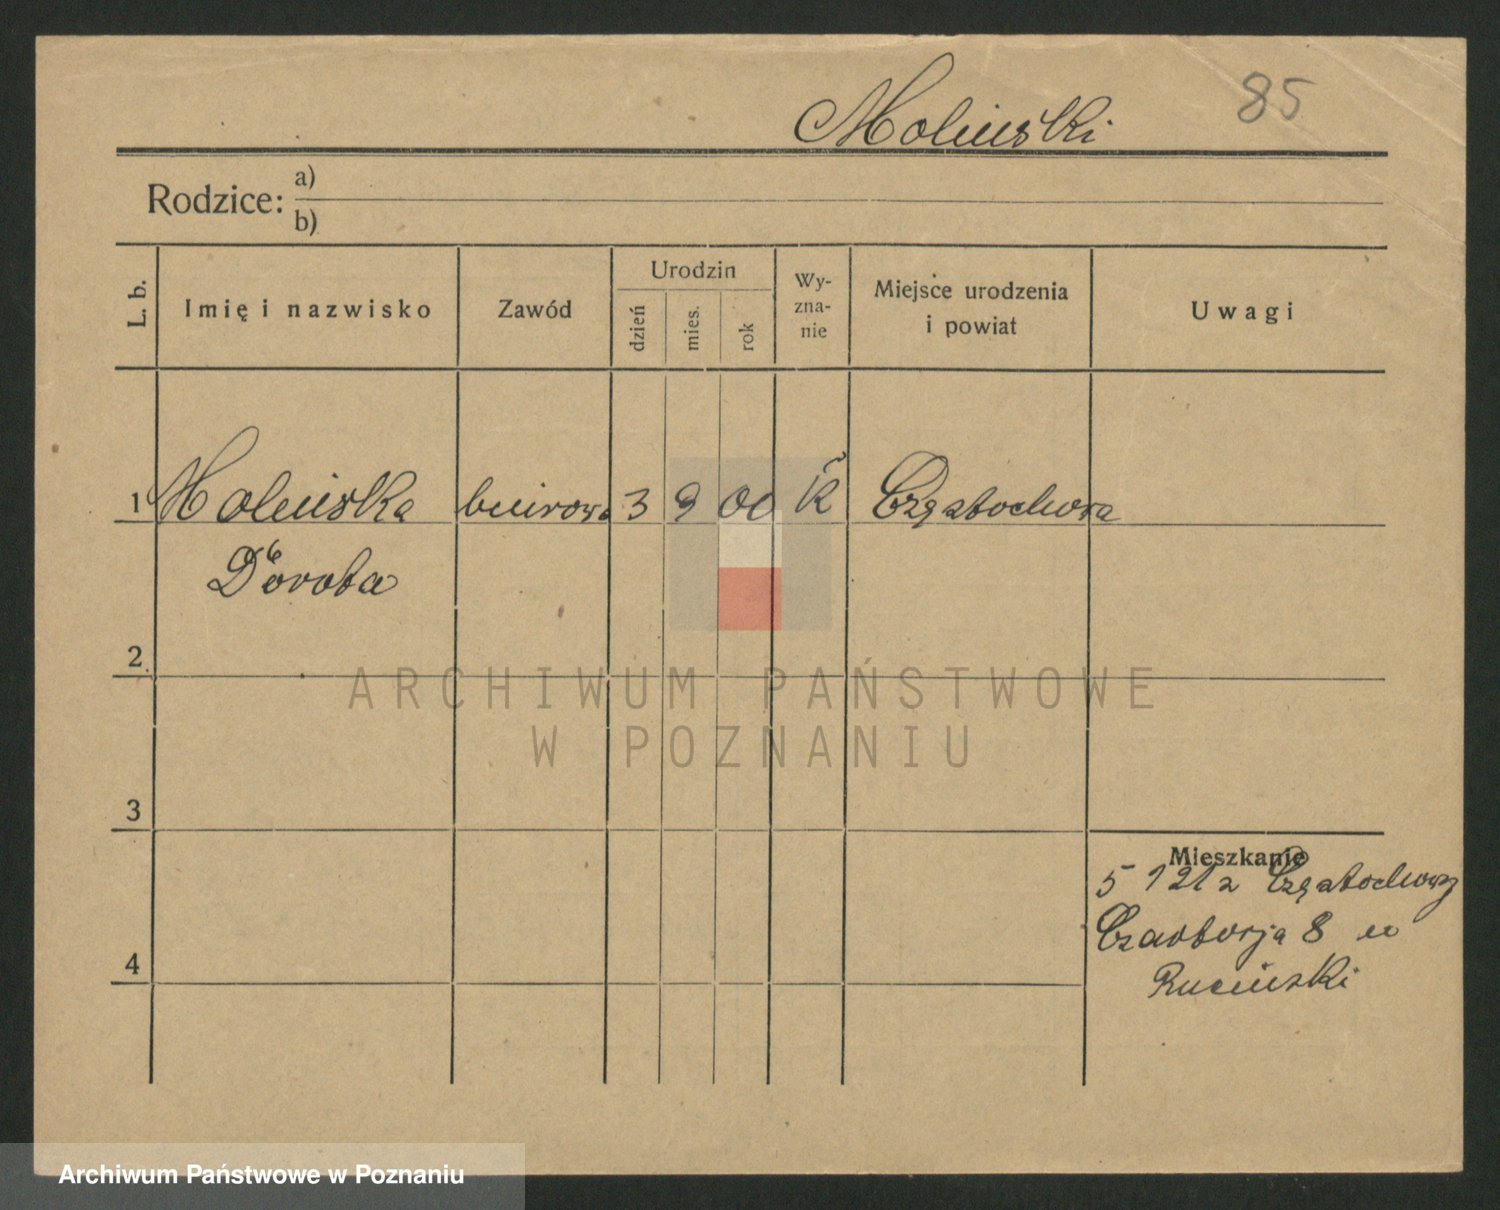 85
Moliński
Rodzice: a)
b)
L. b.
Imię i nazwisko
Zawód
Urodzin
dzień
mies.
rok
Wy-
zna-
nie
Miejsce urodzenia
i powiat
Uwagi
1 Molińska biurowa 3 9 00 K Częstochowa
Dorota
2
3
4
Mieszkanie
5 12 z Częstochowy
8 u
Ruciński
ARCHIWUM PAŃSTWOWE
W POZNANIU
Archiwum Państwowe w Poznaniu